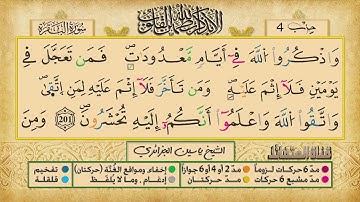 ألا بذكر الله تطمئن القلوب
حزب 4
سورة البقرة
وَاذْكُرُوا اللَّهَ فِي أَيَّامٍ مَّعْدُودَاتٍ فَمَن تَعَجَّلَ فِي
يَوْمَيْنِ فَلَا إِثْمَ عَلَيْهِ وَمَن تَأَخَّرَ فَلَا إِثْمَ عَلَيْهِ لِمَنِ اتَّقَىٰ
وَاتَّقُوا اللَّهَ وَاعْلَمُوا أَنَّكُمْ إِلَيْهِ تُحْشَرُونَ 201 وَمِنَ
الشيخ ياسين الجزائري
مدّ 6 حركات لزوماً مدّ 2 أو 4 أو 6 جوازاً إخفاء، ومواقع الغُنَّة (حركتان) تفخيم
مدّ مشبع 6 حركات مدّ حركتان إدغام، وما لا يُلفَظ قلقلة